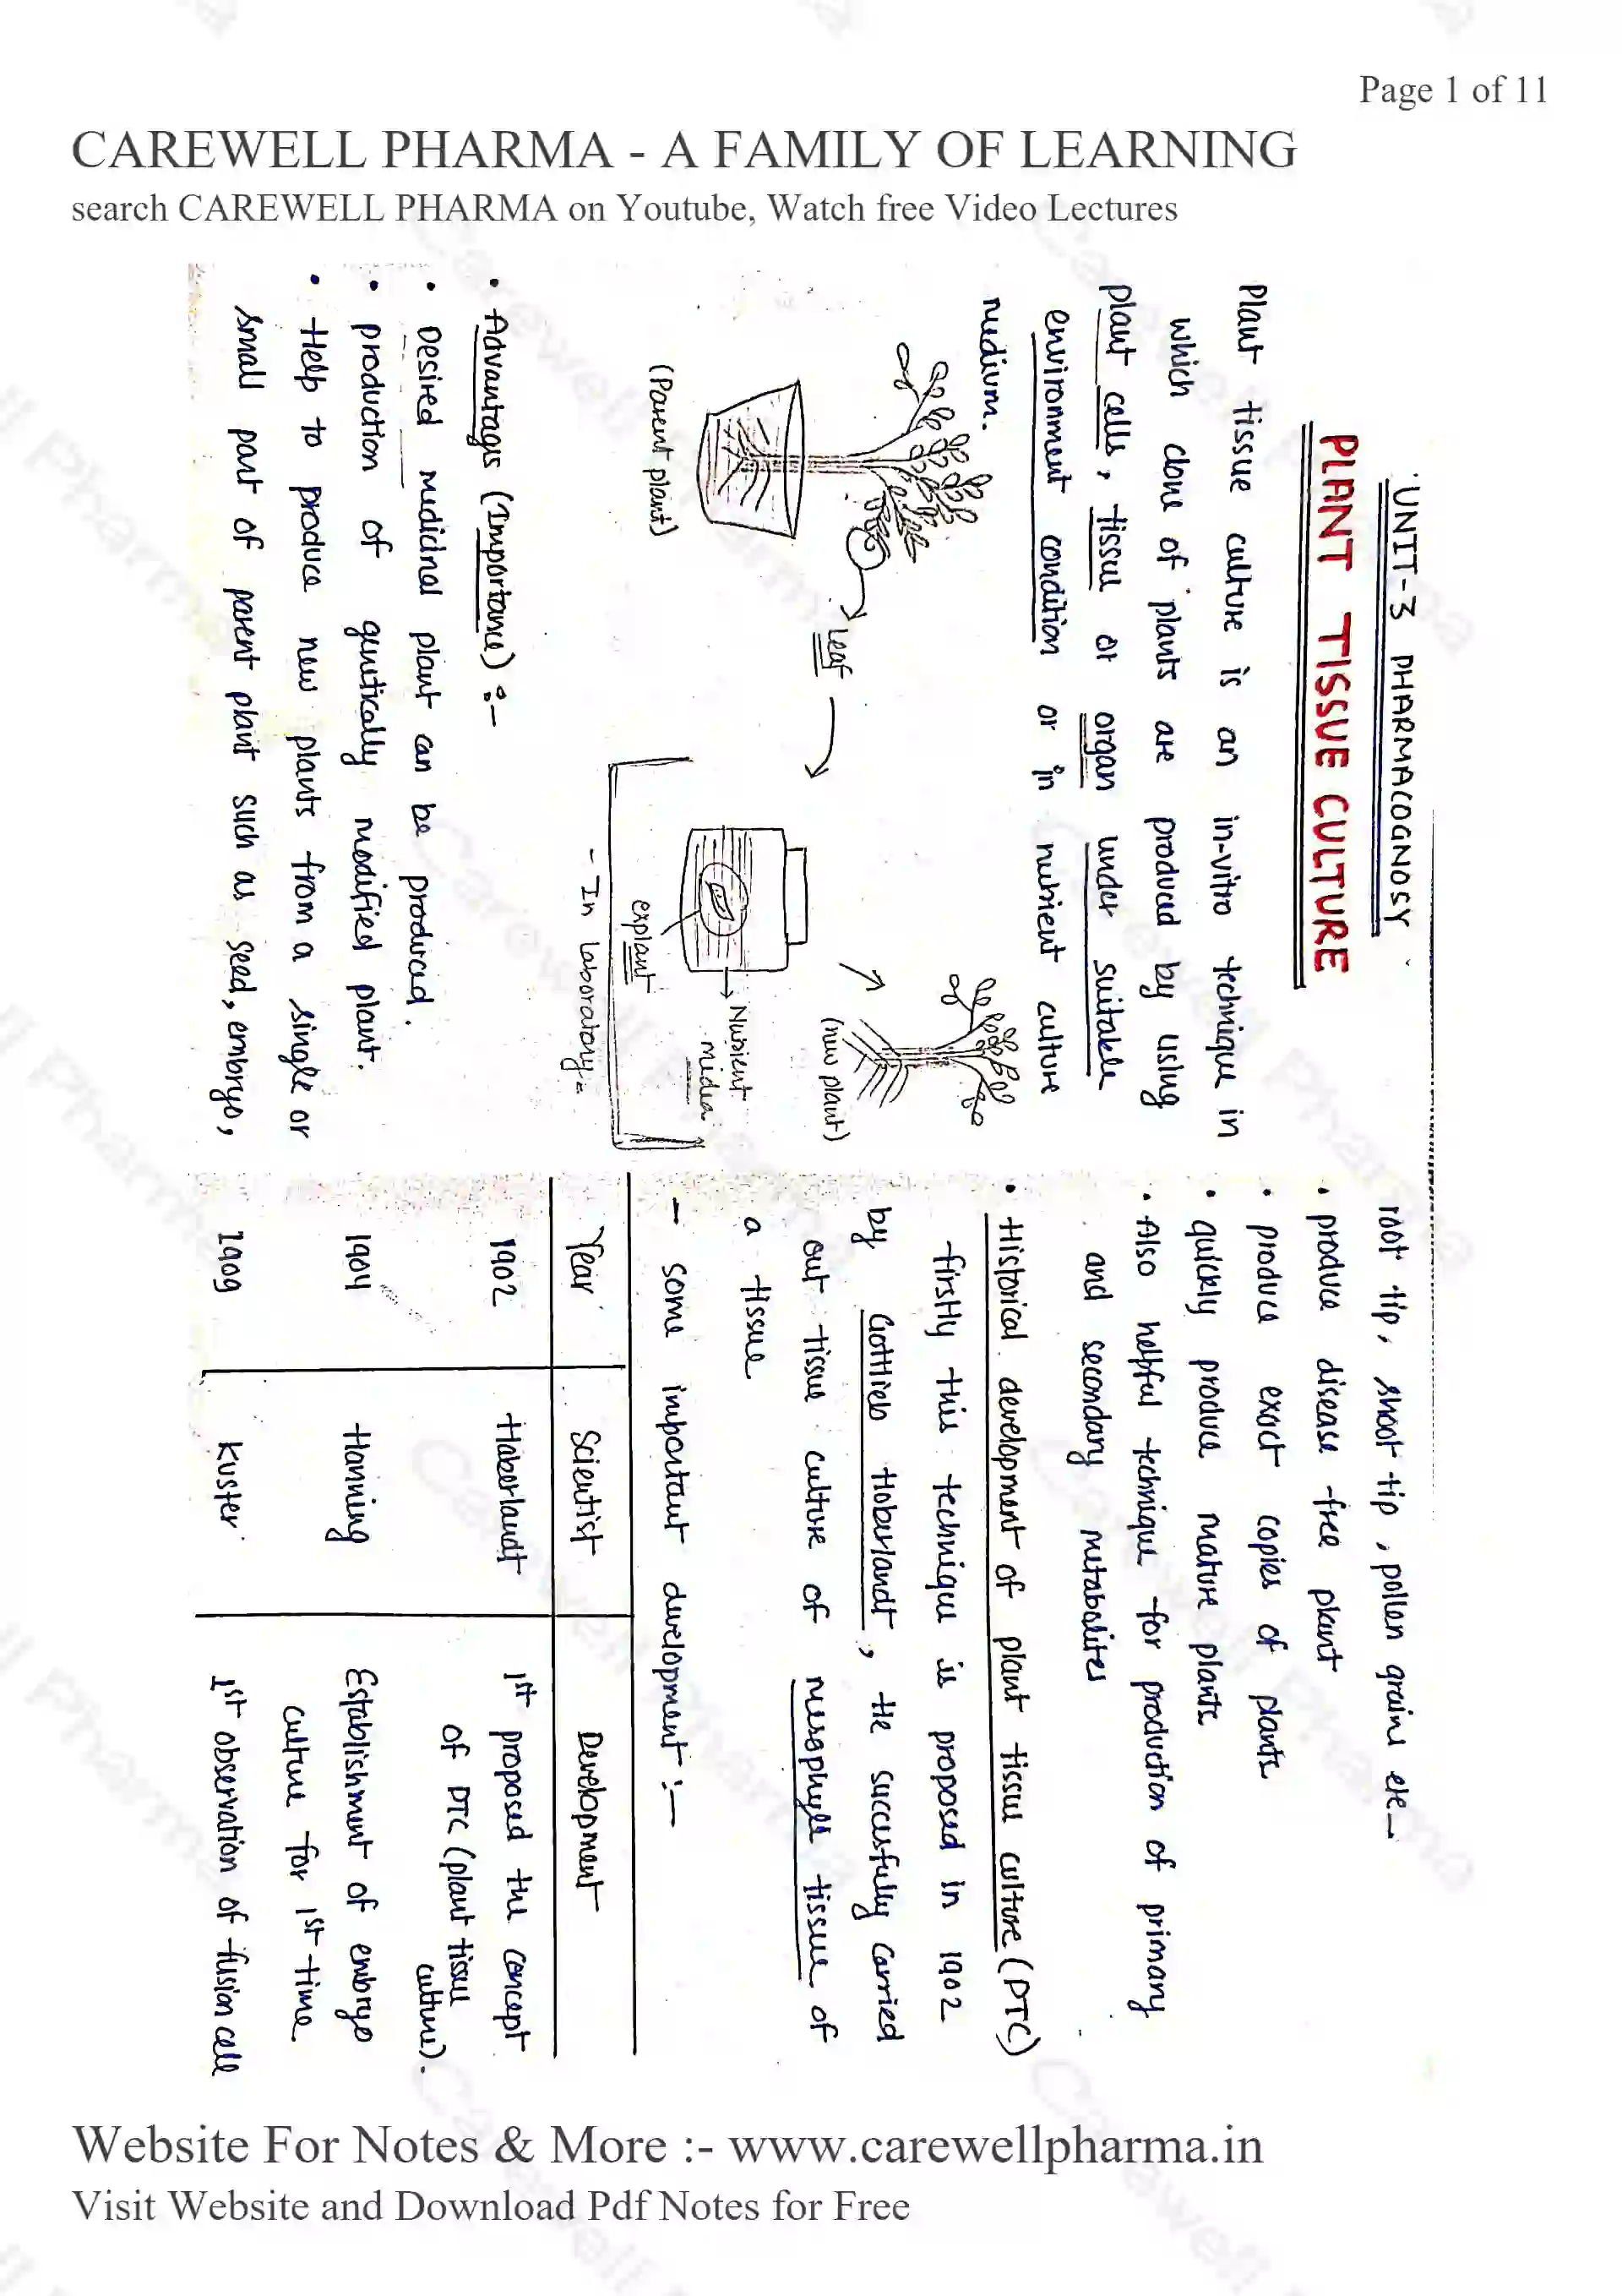 Page 1 of 11
CAREWELL PHARMA - A FAMILY OF LEARNING
search CAREWELL PHARMA on Youtube, Watch free Video Lectures
UNIT-3 PHARMACOGNOSY
PLANT TISSUE CULTURE
Plant tissue culture is an in-vitro technique in
which clone of plants are produced by using
plant cells, tissue or organ under suitable
environment condition or in nutrient culture
medium.
(Parent plant)
Leaf
explant
Nutrient
media
(new plant)
- In laboratory -
• Advantages (Importance) :-
• Desired medicinal plant can be produced.
• production of genetically modified plant.
• Help to produce new plants from a single or
small part of parent plant such as seed, embryo,
root tip, shoot tip, pollen grain etc
• produce disease-free plant
• produce exact copies of plants
• quickly produce mature plants
• Also helpful technique for production of primary
and secondary metabolites
• Historical development of plant tissue culture (PTC)
firstly this technique is proposed in 1902
by Gottlieb Haberlandt, He succesfully carried
out tissue culture of mesophyll tissue of
a tissue
- some important development :-
Year Scientist Development
1902 Haberlandt 1st proposed the concept
of PTC (plant tissue
culture).
1904 Hanning Establishment of embryo
culture for 1st time.
1909 Kuster 1st observation of fusion cell
Website For Notes & More :- www.carewellpharma.in
Visit Website and Download Pdf Notes for Free
Carewell Pharma